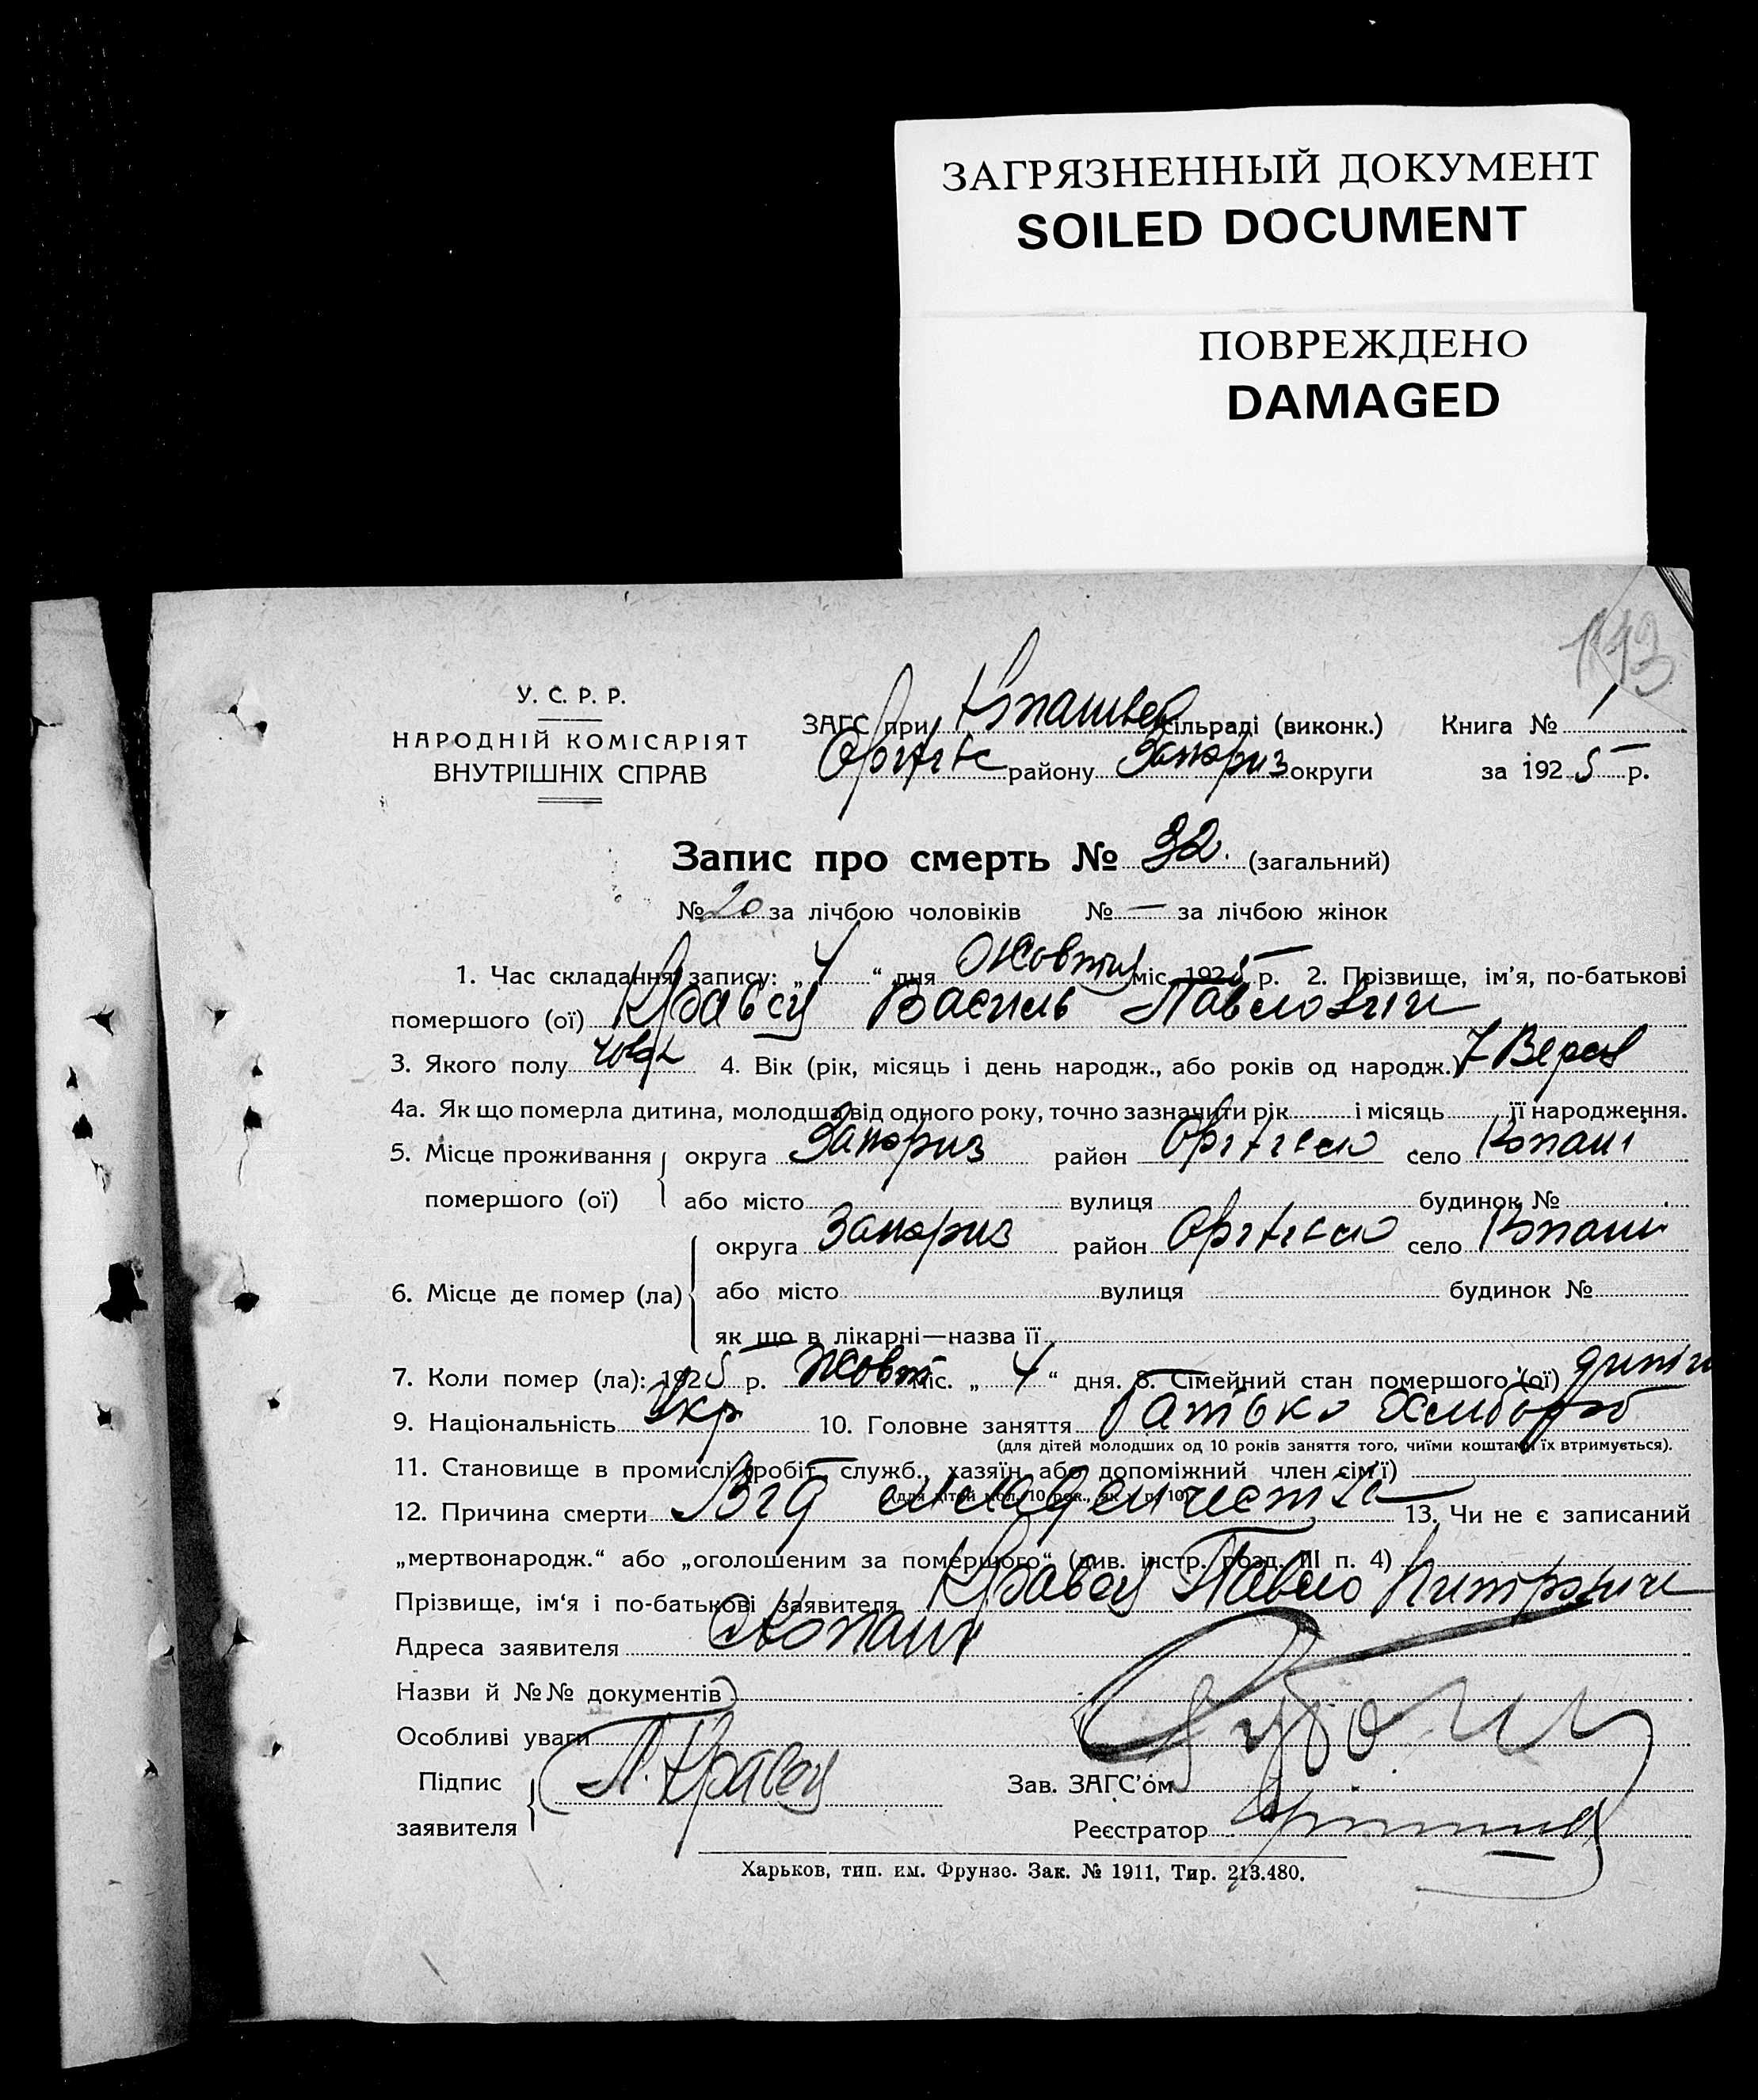 ЗАГРЯЗНЕННЫЙ ДОКУМЕНТ
SOILED DOCUMENT
ПОВРЕЖДЕНО
DAMAGED
У. С. Р. Р.
НАРОДНІЙ КОМІСАРІЯТ
ВНУТРІШНІХ СПРАВ
ЗАГС при сільраді (виконк.) Книга № 1
району Запориз округи за 1925 р.
Запис про смерть № 32. (загальний)
№ 20 за лічбою чоловіків № — за лічбою жінок
1. Час складання запису: „ 4 “ дня Жовтня міс. 1925 р. 2. Прізвище, ім'я, по-батькові
помершого (ої) Кравец Василь Павлович
3. Якого полу 4. Вік (рік, місяць і день народж., або років од народж.) 7 Верес
4а. Як що померла дитина, молодша від одного року, точно зазначити рік і місяць її народження.
5. Місце проживання помершого (ої) округа Запориз район село Копані
або місто вулиця будинок №
6. Місце де помер (ла) округа Запориз район село Копани
або місто вулиця будинок №
як що в лікарні—назва її
7. Коли помер (ла): 1925 р. Жовт міс. „ 4 “ дня. 8. Сімейний стан помершого (ої)
9. Національність Укр 10. Головне заняття Батько Хлибороб
(для дітей молодших од 10 років заняття того, чиїми коштами їх втримується).
11. Становище в промислі (робіт., служб., хазяїн або допоміжний член сім'ї)
(для дітей мол. 10 рок., як у п. 10)
12. Причина смерти Від младенчества 13. Чи не є записаний
„мертвонародж.“ або „оголошеним за помершого“ (див. інстр. розд. III п. 4)
Прізвище, ім'я і по-батькові заявителя Кравец Павло
Адреса заявителя Копани
Назви й №№ документів
Особливі уваги
Підпис заявителя П. Кравец Зав. ЗАГС'ом
Реєстратор
Харьков, тип. им. Фрунзе. Зак. № 1911, Тир. 213.480.